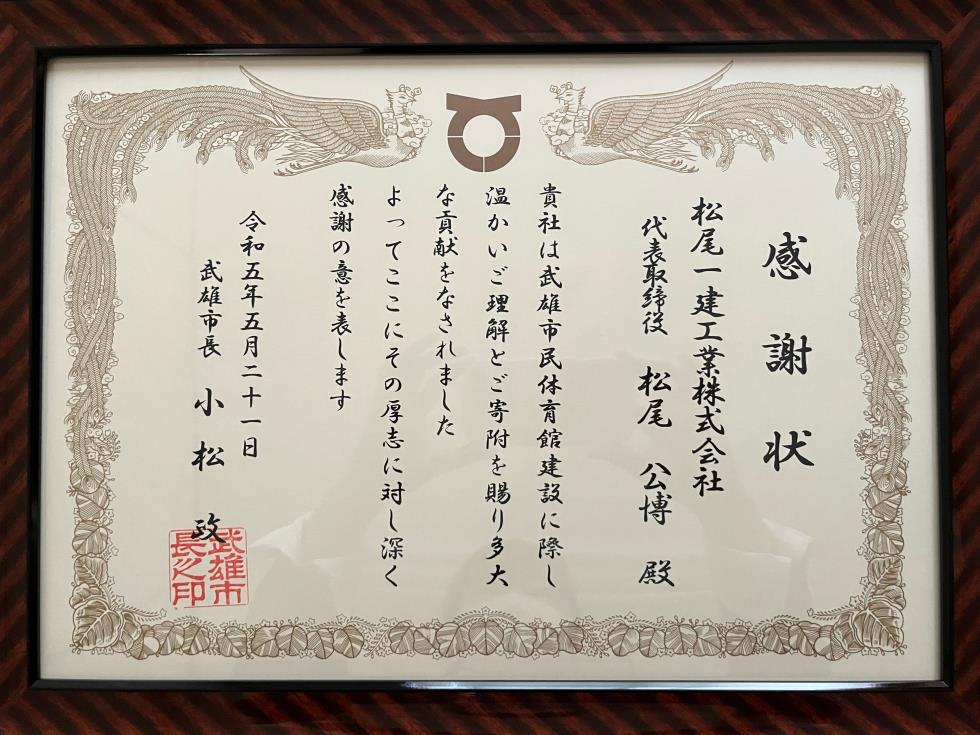 感謝状
松尾一建工業株式会社
代表取締役 松尾 公博 殿
貴社は武雄市民体育館建設に際し
温かいご理解とご寄附を賜り多大
な貢献をなされました
よってここにその厚志に対し深く
感謝の意を表します
令和五年五月二十一日
武雄市長 小松 政
武雄市
長之印